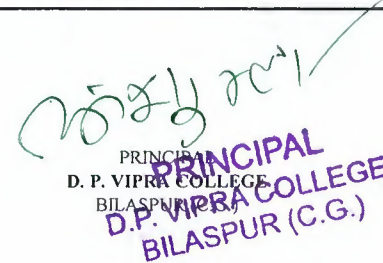 PRINCIPAL
D. P. VIPRA COLLEGE
BILASPUR (C.G.)
PRINCIPAL
D.P. VIPRA COLLEGE
BILASPUR (C.G.)